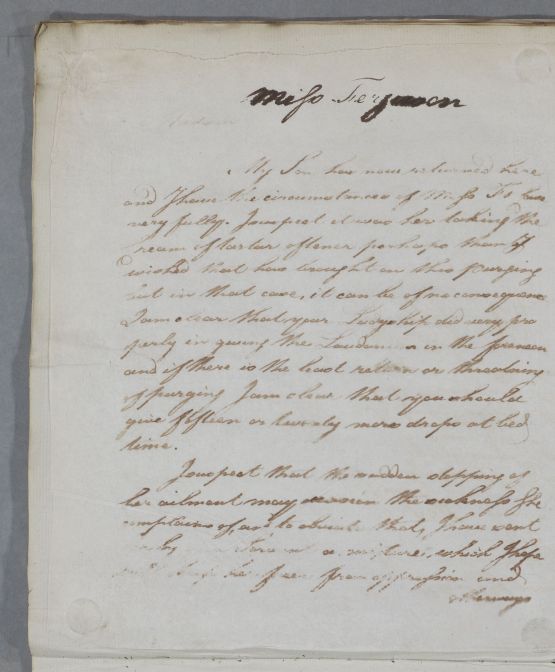 Miss Ferguson
Madam
My Son has now returned here
and I have the circumstances of Miss F's case
very fully. I suspect it was her taking the
cream of tartar oftener perhaps than I
wished that has brought on this purging
but in that case, it can be of no consequence
I am clear that your Ladyship did very pro
perly in giving the Laudanum in the forenoon
and if there is the least return or threatening
of purging I am clear that you should
give fifteen or twenty more drops at bed
time.
I suspect that the sudden stopping of
her ailment may occasion the sickness she
complains of, and to obviate that, I have sent
by your Servant a mixture, which I hope
keep her free from oppression and
otherways